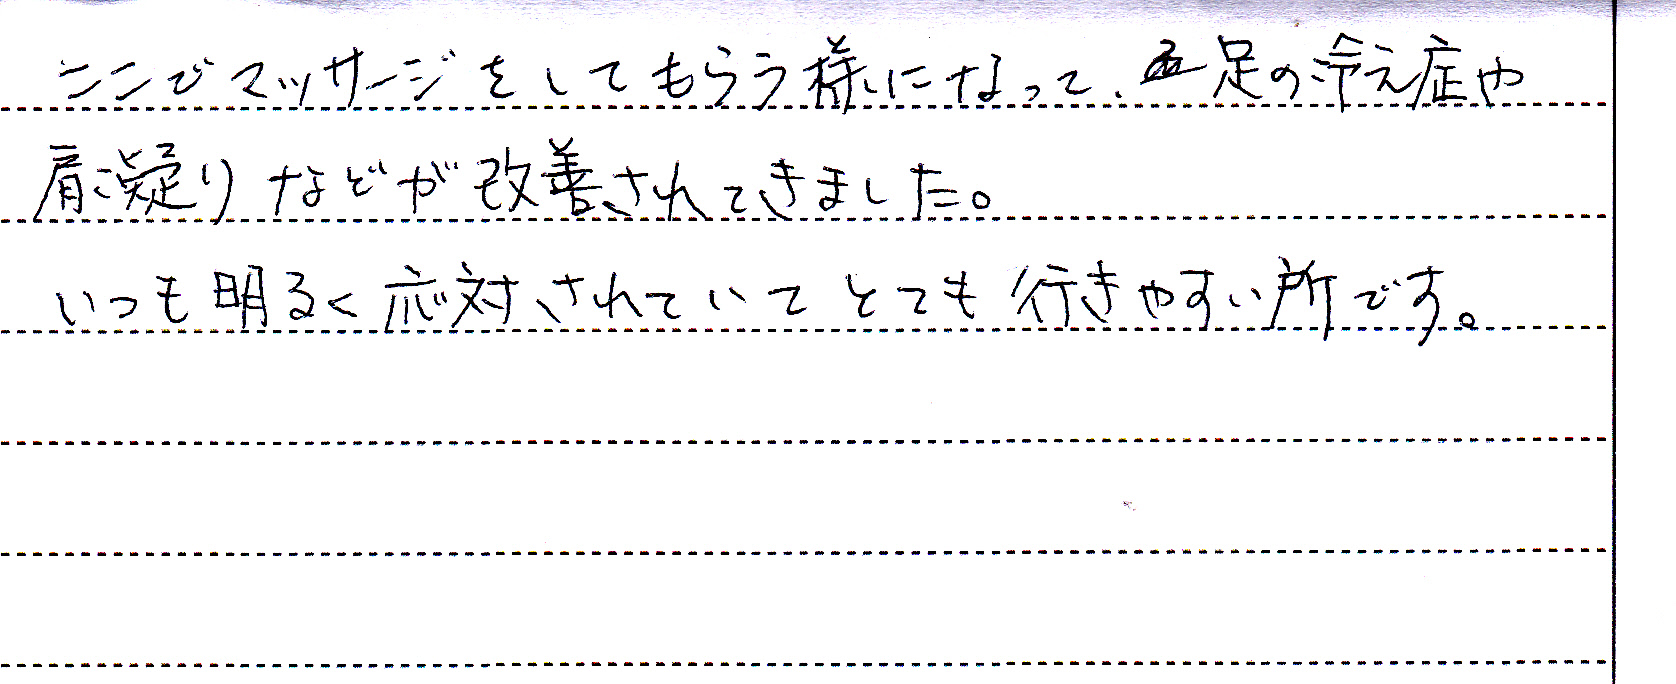 ここでマッサージをしてもらう様になって、足の冷え症や
肩凝りなどが改善されてきました。
いつも明るく応対されていてとても行きやすい所です。